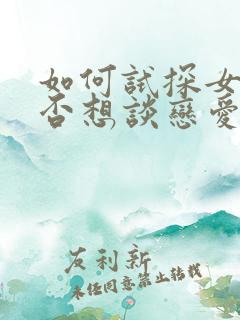 如何試探女
否想談戀愛
友利新
未经同意禁止转载